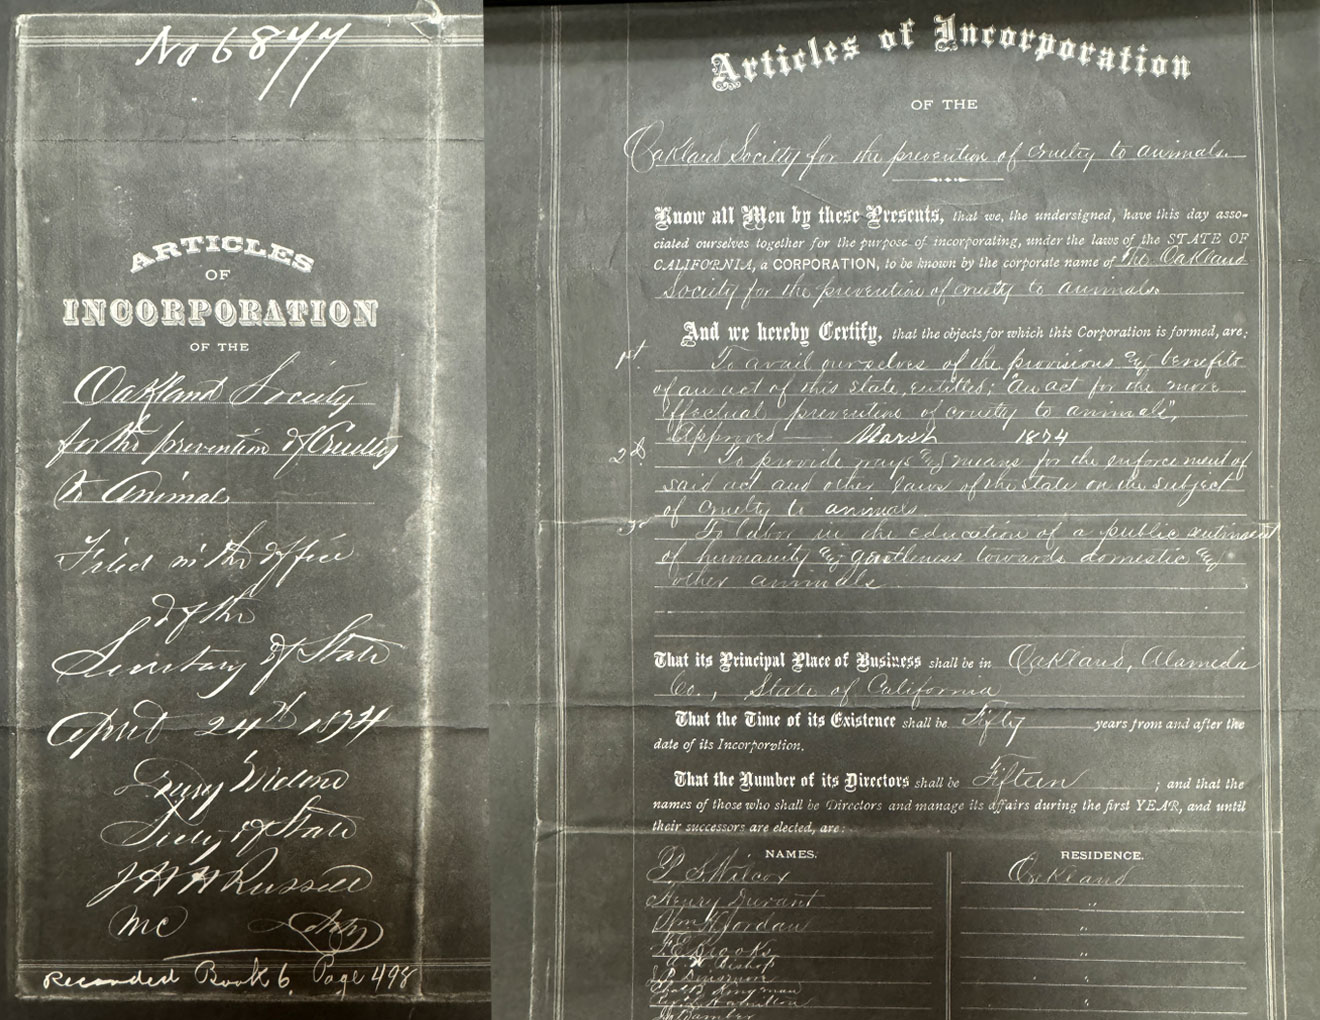 No 6877
ARTICLES
OF
INCORPORATION
OF THE
Oakland Society
for the prevention of Cruelty
to Animal
Filed in the office
of the
Secretary of State
April 24th 1874
Drury Melone
Secy of State
J H H Russell
Recorded Book 6, Page 498
Articles of Incorporation
OF THE
Oakland Society for the prevention of cruelty to animals.
Know all Men by these Presents, that we, the undersigned, have this day asso-
ciated ourselves together for the purpose of incorporating, under the laws of the STATE OF
CALIFORNIA, a CORPORATION, to be known by the corporate name of The Oakland
Society for the prevention of cruelty to animals.
And we hereby Certify, that the objects for which this Corporation is formed, are:
1st. To avail ourselves of the provisions & benefits
of an act of this State, entitled; "An act for the more
effectual prevention of cruelty to animals",
Approved — March 1874
2d To provide ways & means for the enforcement of
said act and other laws of the state on the subject
of cruelty to animals.
3d To labor in the education of a public sentiment
of humanity & gentleness towards domestic &
other animals.
That its Principal Place of Business shall be in Oakland, Alameda
Co., State of California
That the Time of its Existence shall be Fifty years from and after the
date of its Incorporation.
That the Number of its Directors shall be Fifteen ; and that the
names of those who shall be Directors and manage its affairs during the first YEAR, and until
their successors are elected, are:
NAMES. RESIDENCE.
P S Wilcox Oakland
Henry Durant "
Wm H Jordan "
F E Brooks "
Bishop
J P Dinsmore "
Chas B Kingman
Hamilton "
Bamber